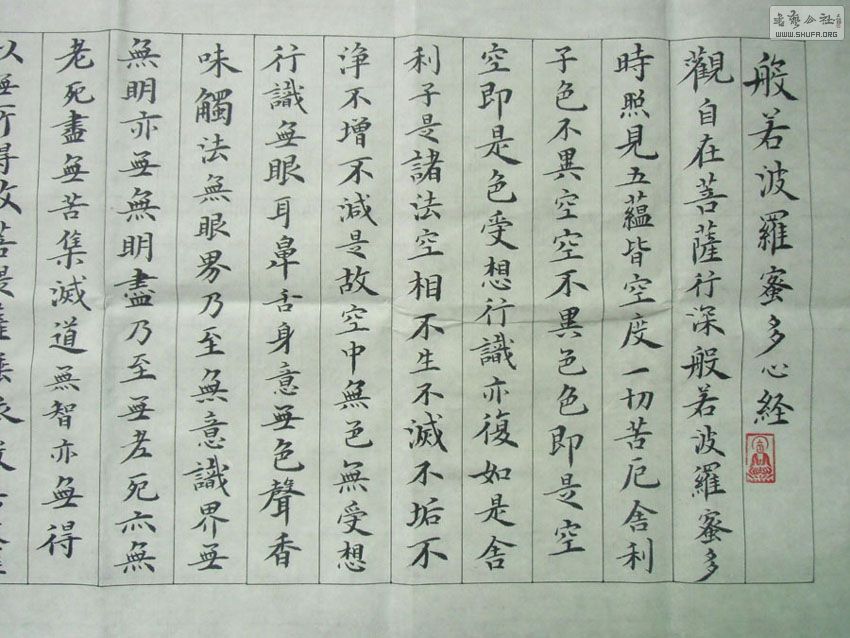 般若波羅蜜多心経
觀自在菩薩行深般若波羅蜜多
時照見五蘊皆空度一切苦厄舍利
子色不異空空不異色色即是空
空即是色受想行識亦復如是舍
利子是諸法空相不生不滅不垢不
淨不增不減是故空中無色無受想
行識無眼耳鼻舌身意無色聲香
味觸法無眼界乃至無意識界無
無明亦無無明盡乃至無老死亦無
老死盡無苦集滅道無智亦無得
以無所得故菩提薩埵依
書藝公社
WWW.SHUFA.ORG